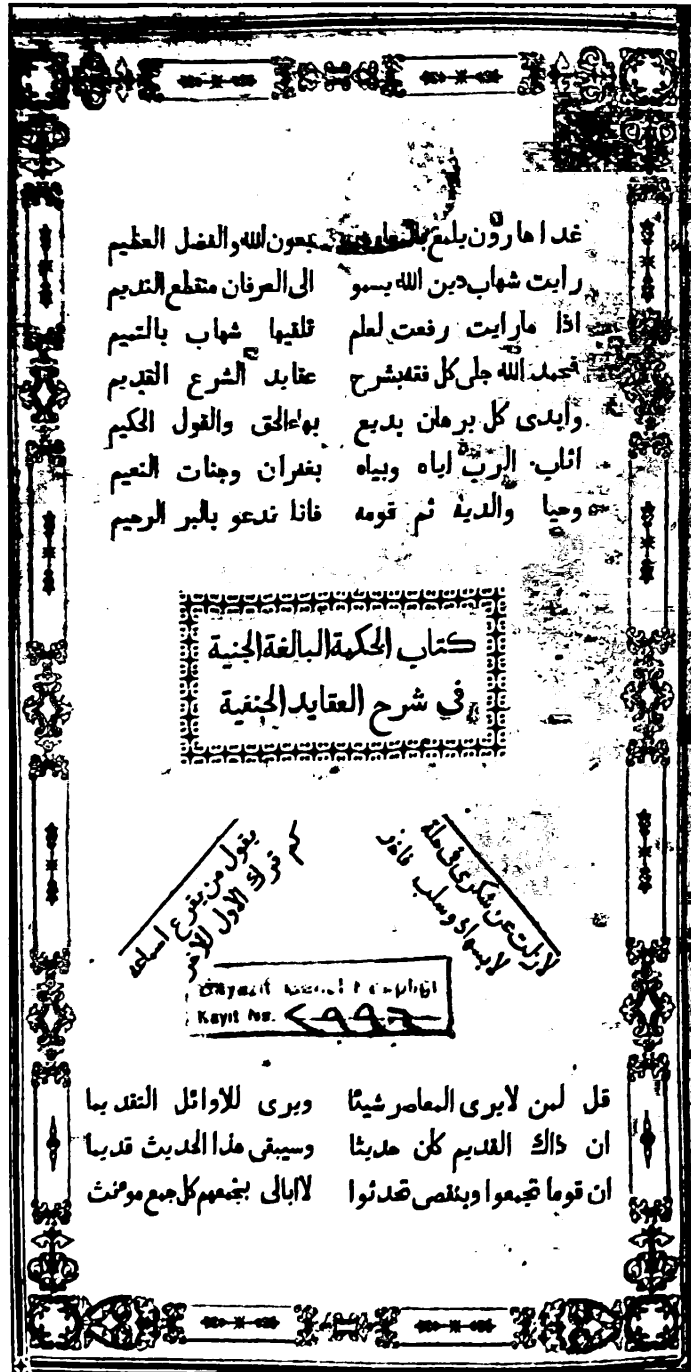 غدا هارون يلمع بعون الله والفضل العظيم
رايت شهاب دين الله يسمو الى العرفان منقطع النديم
اذا مارايت رفعت لعلم تلقيها شهاب بالتميم
فحمد الله جلى كل فقه بشرح عقايد الشرع القديم
وابدى كل برهان بديع بهاء الحق والقول الحكيم
اثاب الرب اياه وبياه بغفران وجنات النعيم
وحيا والديه ثم قومه فانا ندعو بالبر الرحيم
كتاب الحكمة البالغة الجنية
في شرح العقايد الحنفية
لا زلت عن شكري في حلة
لابسها ذو سلب فاخر
يقول من يقرع اسماعه
كم ترك الاول للاخر
Kayıt No. ٢٩٩٦
قل لمن لايرى المعاصر شيئا ويرى للاوائل التقديما
ان ذاك القديم كان حديثا وسيبقى هذا الحديث قديما
ان قوما تجمعوا وبنقصى تحدثوا لاابالى بجمعهم كل جمع مونث